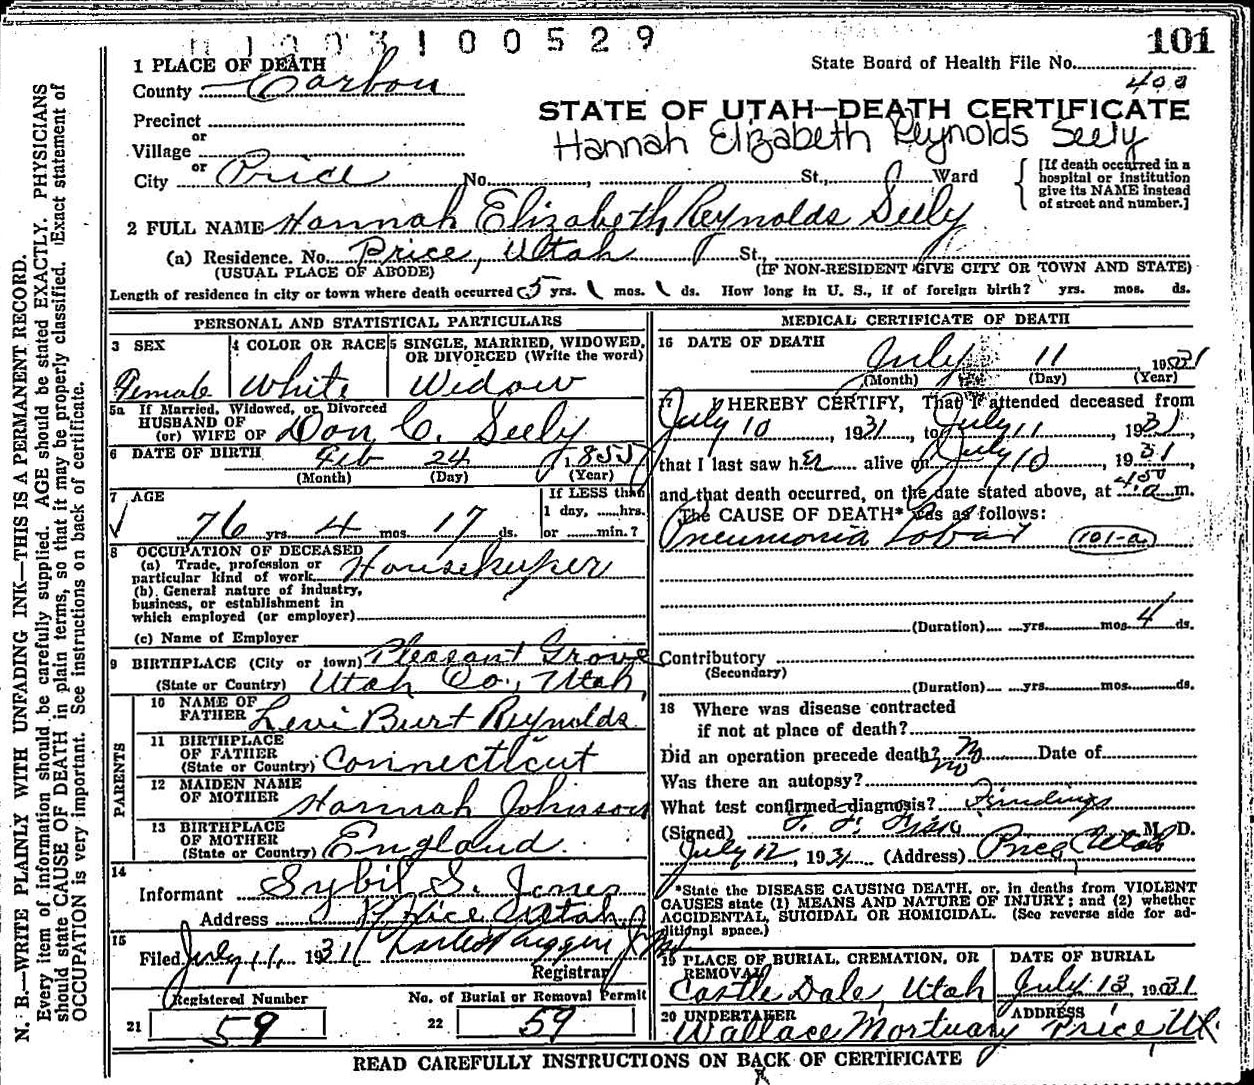 H 1003100529
101
1 PLACE OF DEATH
State Board of Health File No.
400
County Carbon
STATE OF UTAH—DEATH CERTIFICATE
Precinct
Hannah Elizabeth Reynolds Seely
or
Village
or
City Price No. , St., Ward
[If death occurred in a hospital or institution give its NAME instead of street and number.]
2 FULL NAME Hannah Elizabeth Reynolds Seely
(a) Residence. No. Price, Utah St.,
(USUAL PLACE OF ABODE) (IF NON-RESIDENT GIVE CITY OR TOWN AND STATE)
Length of residence in city or town where death occurred 5 yrs. mos. ds. How long in U. S., if of foreign birth? yrs. mos. ds.
PERSONAL AND STATISTICAL PARTICULARS
3 SEX
Female
4 COLOR OR RACE
White
5 SINGLE, MARRIED, WIDOWED, OR DIVORCED (Write the word)
Widow
5a If Married, Widowed, or Divorced
HUSBAND OF
(or) WIFE OF Don C. Seely
6 DATE OF BIRTH Feb 24 1855
(Month) (Day) (Year)
7 AGE
76 yrs. 4 mos. 17 ds.
If LESS than
1 day, hrs.
or min.?
8 OCCUPATION OF DECEASED
(a) Trade, profession or
particular kind of work Housekeeper
(b) General nature of industry,
business, or establishment in
which employed (or employer)
(c) Name of Employer
9 BIRTHPLACE (City or town) Pleasant Grove
(State or Country) Utah Co., Utah
PARENTS
10 NAME OF
FATHER Levi Burt Reynolds
11 BIRTHPLACE
OF FATHER
(State or Country) Connecticut
12 MAIDEN NAME
OF MOTHER Hannah Johnson
13 BIRTHPLACE
OF MOTHER
(State or Country) England
14
Informant Sybil S. Jones
Address Price Utah
15
Filed July 11, 1931
Registrar
Registered Number
21 59
No. of Burial or Removal Permit
22 59
MEDICAL CERTIFICATE OF DEATH
16 DATE OF DEATH
July 11 1931
(Month) (Day) (Year)
17 I HEREBY CERTIFY, That I attended deceased from
July 10, 1931, to July 11, 1931,
that I last saw her alive on July 10, 1931
and that death occurred, on the date stated above, at 4:50 a m.
The CAUSE OF DEATH* was as follows:
Pneumonia Lobar 101-a
(Duration) yrs. mos. 4 ds.
Contributory
(Secondary)
(Duration) yrs. mos. ds.
18 Where was disease contracted
if not at place of death?
Did an operation precede death? No Date of
Was there an autopsy? No
What test confirmed diagnosis? Findings
(Signed) M. D.
July 12, 1931 (Address) Price, Utah
*State the DISEASE CAUSING DEATH, or, in deaths from VIOLENT
CAUSES state (1) MEANS AND NATURE OF INJURY; and (2) whether
ACCIDENTAL, SUICIDAL OR HOMICIDAL. (See reverse side for ad-
ditional space.)
19 PLACE OF BURIAL, CREMATION, OR
REMOVAL
Castle Dale, Utah
DATE OF BURIAL
July 13, 1931
20 UNDERTAKER
Wallace Mortuary
ADDRESS
Price, Ut.
READ CAREFULLY INSTRUCTIONS ON BACK OF CERTIFICATE
N. B.—WRITE PLAINLY WITH UNFADING INK—THIS IS A PERMANENT RECORD.
Every item of information should be carefully supplied. AGE should be stated EXACTLY. PHYSICIANS
should state CAUSE OF DEATH in plain terms, so that it may be properly classified. Exact statement of
OCCUPATION is very important. See instructions on back of certificate.